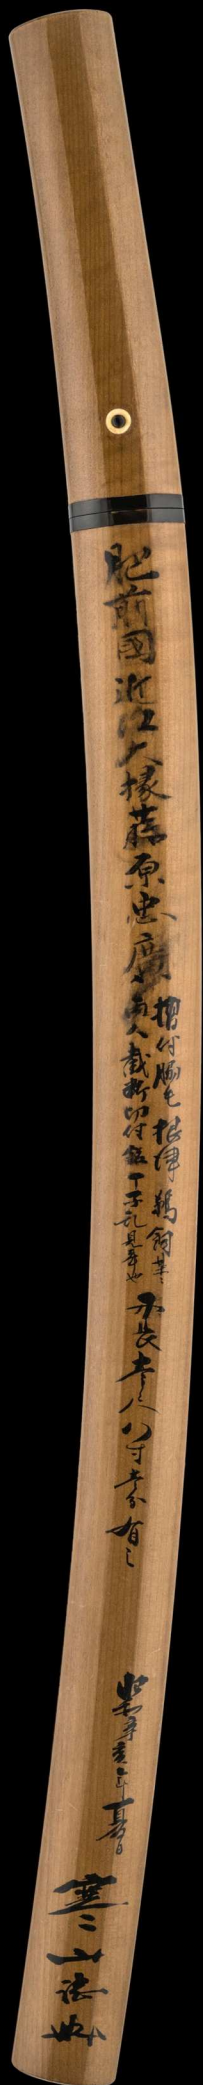 肥前國近江大掾藤原忠廣
摺付脇毛根津鵜飼
両人截断切付銘丁子乱見事也
刃長壱尺八寸壱分有之
昭和辛亥年夏日
寒山誌